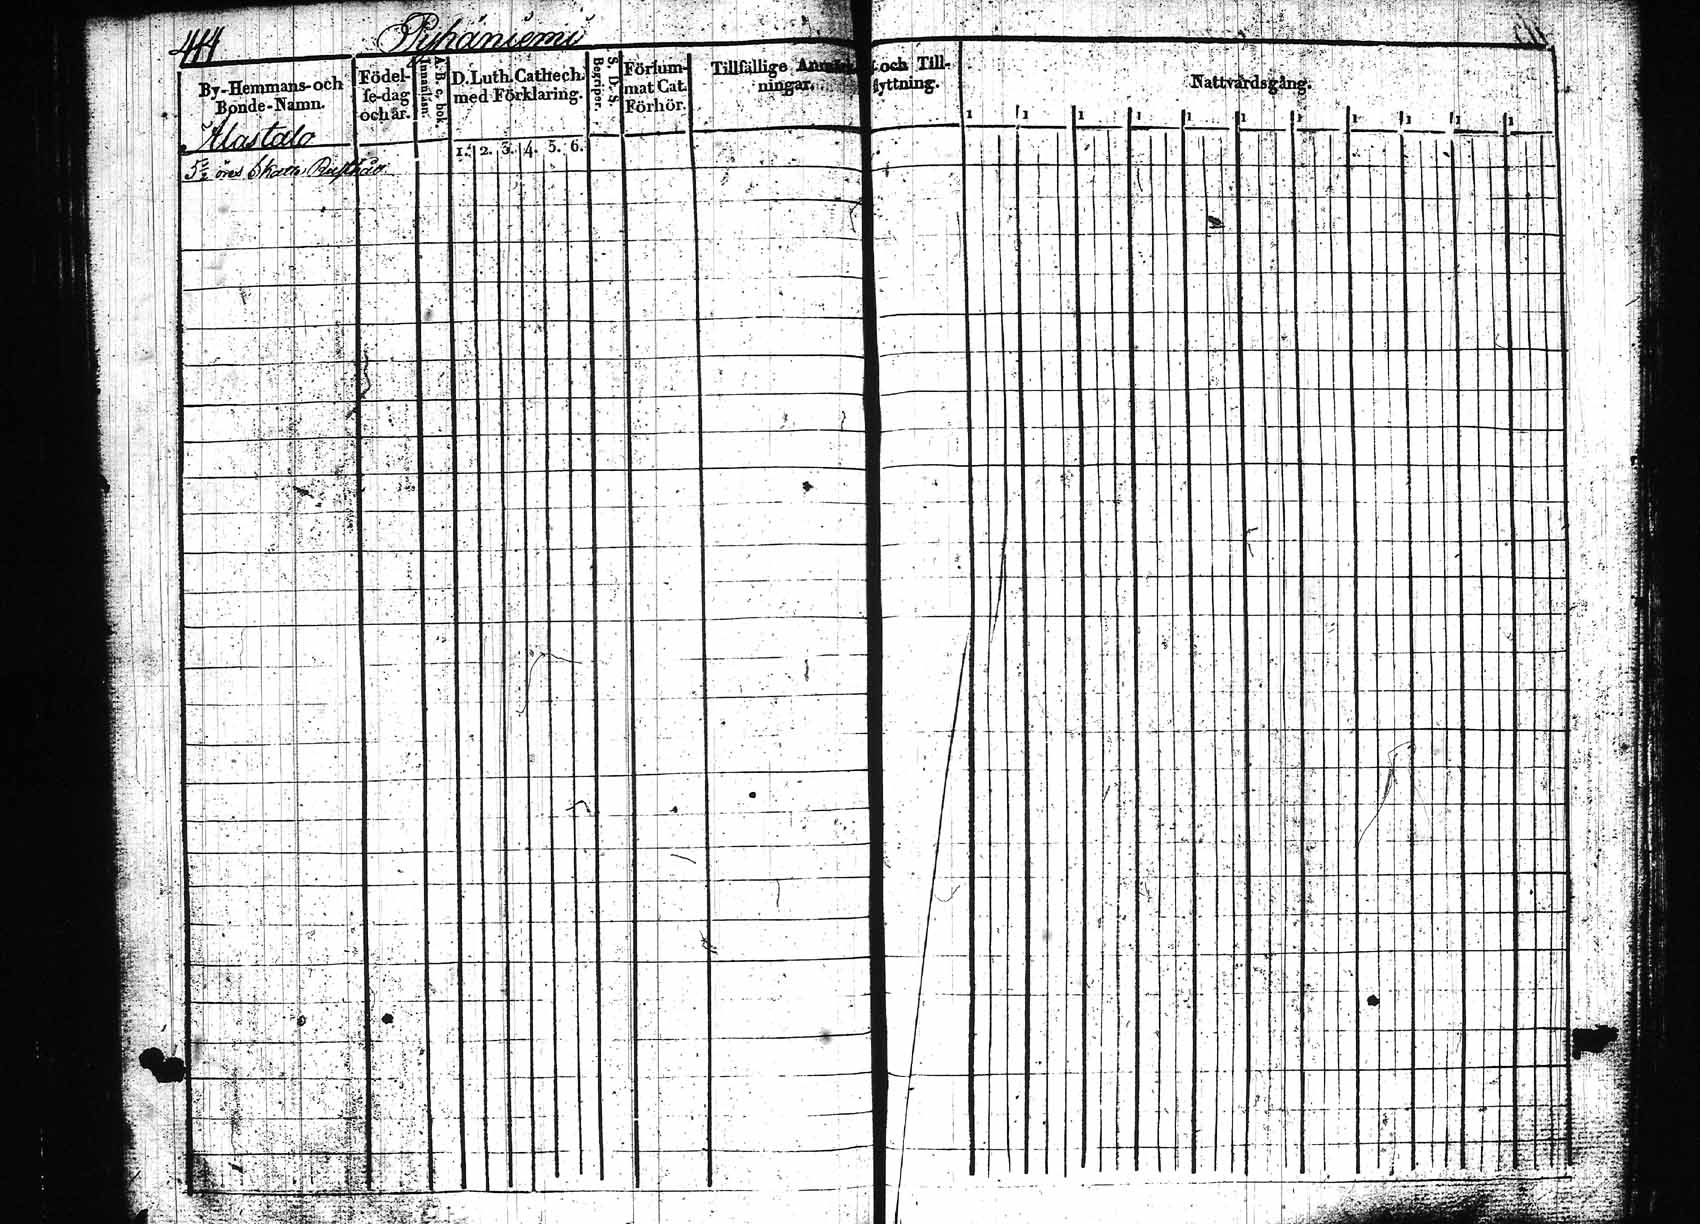 444 Pyhäniemi
By-Hemmans-och
Bonde-Namn.
Födel-
se-dag
och år.
A. B. c, bok.
Innanläsn.
D. Luth. Cathech.
med Förklaring.
1. 2. 3. 4. 5. 6.
S. D. S.
Begriper.
Försum-
mat Cat.
Förhör.
Tillfällige Anmärk
ningar.
och Till-
flyttning.
Nattvardsgång.
1 1 1 1 1 1 1 1 1 1 1
Alastalo
5 öres Skatt, Rusthåll